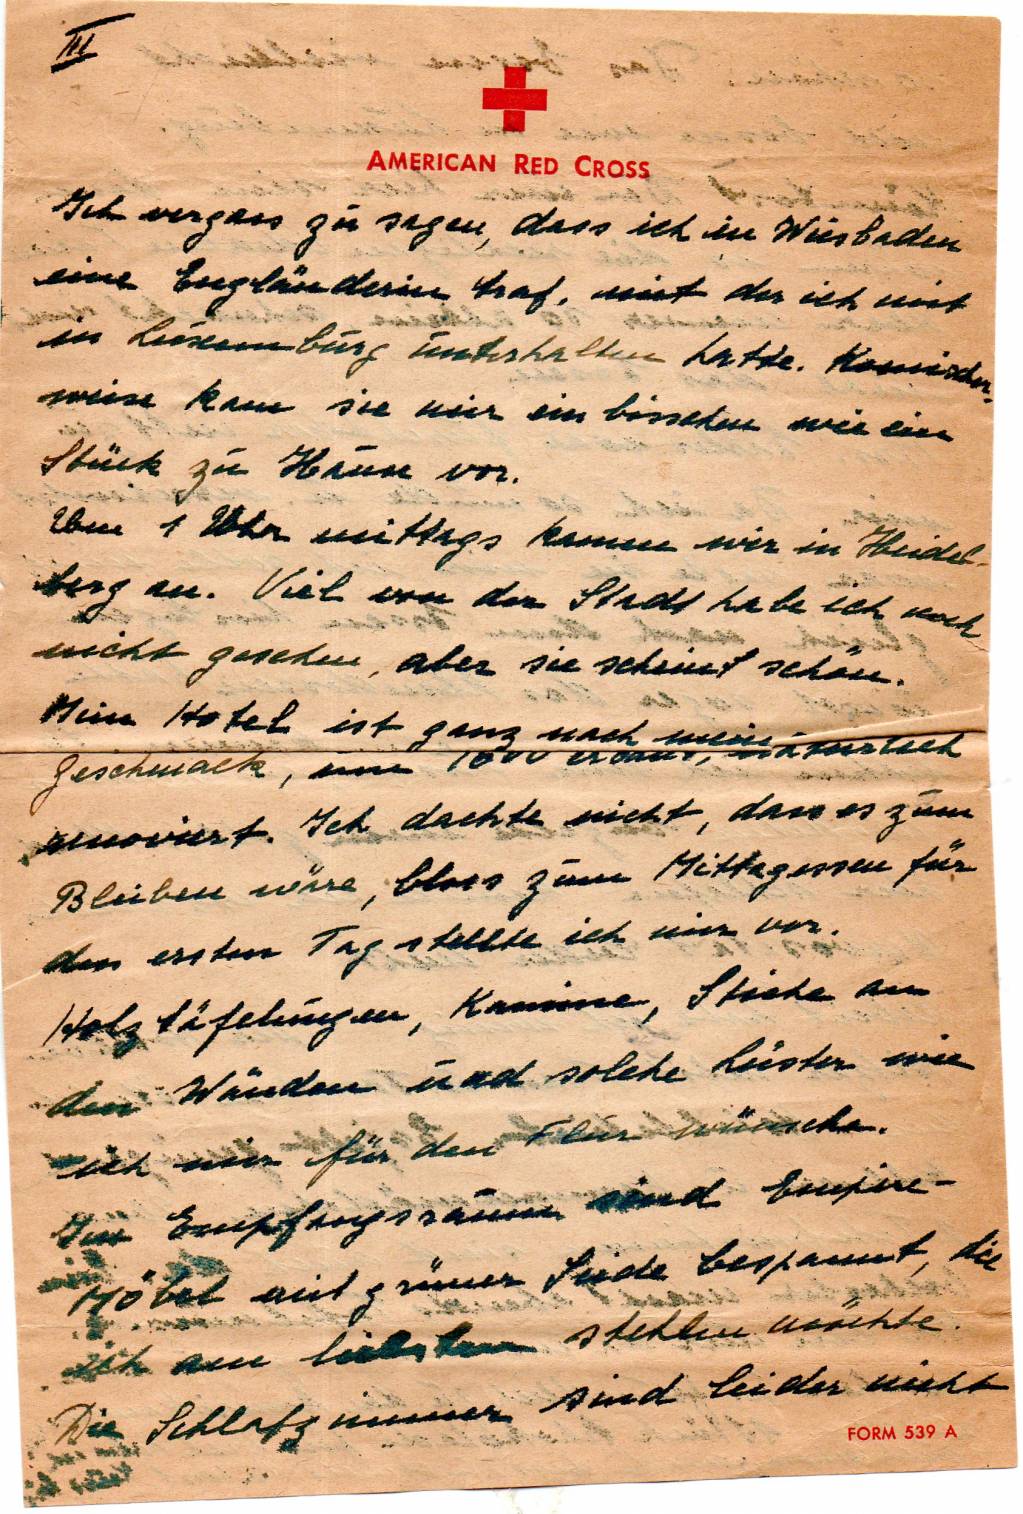 III
AMERICAN RED CROSS
Ich vergass zu sagen, dass ich in Wiesbaden
eine Engländerin traf, mit der ich mit
in Luxemburg unterhalten hatte. Komischer-
weise kam sie mir ein bisschen wie ein
Stück zu Hause vor.
Um 1 Uhr mittags kamen wir in Heidel-
berg an. Viel von der Stadt habe ich noch
nicht gesehen, aber sie scheint schön.
Mein Hotel ist ganz nach mein
Geschmack, um 1600 erbaut, natürlich
renoviert. Ich dachte nicht, dass es zum
Bleiben wäre, bloss zum Mittagessen für
den ersten Tag stellte ich mir vor.
Holztäfelungen, Kamine, Stiche an
den Wänden und solche Lüster wie
ich mir für den Flur wünsche.
Im Empfangsraum sind Empire-
Möbel mit grüner Seide bespannt, die
ich am liebsten stehlen möchte.
Die Schlafzimmer sind leider nicht
FORM 539 A